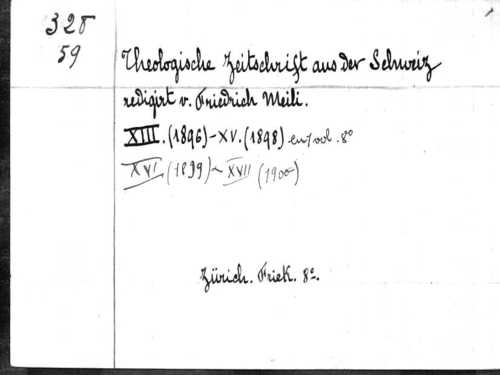 328
59
Theologische Zeitschrift aus der Schweiz
redigirt v. Friedrich Meili.
XIII. (1896)-XV. (1898) en 1 vol. 8º
XVI (1899) - XVII (1900)
Zürich. Frick. 8º.